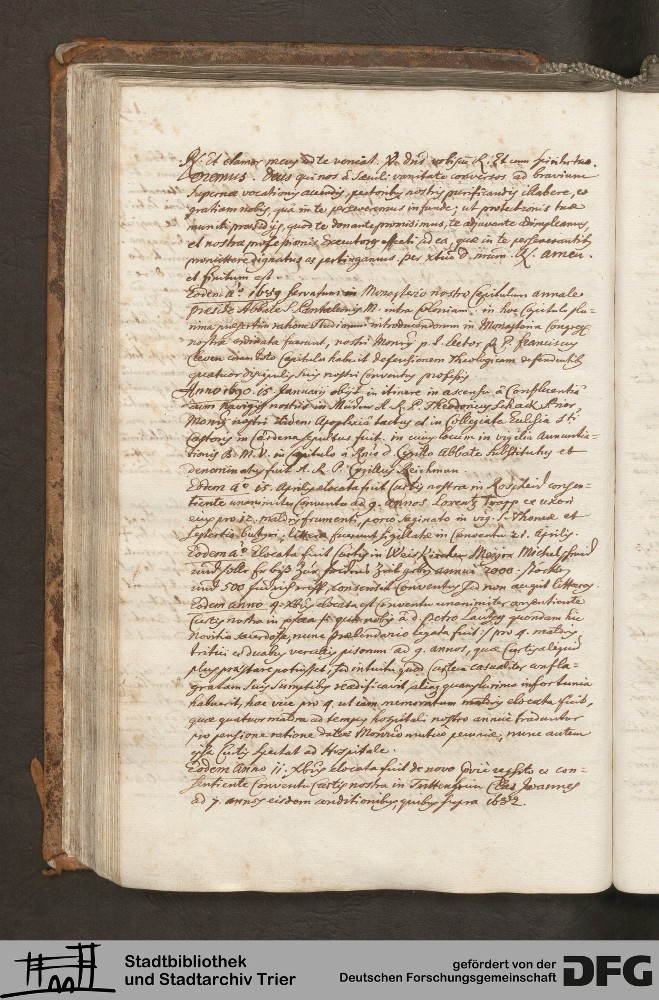 ℣. Et clamor meus ad te veniat. ℣. Dñs vobiscũ ℟. Et cum spiritu tuo.
Oremus. Deus qui nos à sæculi vanitate conversos ad bravium
supernæ vocationis accendis, pectoribus nostris purificandis illabere, et
gratiam nobis, quâ in te perseveremus infunde; ut protectionis tuæ
muniti præsidijs, quod te donante promisimus, te adjuvante adimpleamus,
et nostræ professionis executores effecti, ad ea, quæ in te perseverantibus
promittere dignatus es pertingamus. per Xtũm D. nrum. ℟. amen.
et finitum est.
Eodem aº. 1689 servatum in Monasterio nostro Capitulum annale
præside Abbate S. Pantaleonis M. intra Coloniam. in hoc Capitulo plu-
rima præsertim ratione studiorum introducendorum in Monasteria Congreg.
nostræ ordinata fuerunt, nostri Monrij p. t. lector R. P. Franciscus
Cleven coram toto Capitulo habuit defensionem Theologicam defendentibus
quatuor discipulis suis nostri conventus professis
Anno 1690. 15 Januarij obijt in itinere in ascensu à Confluentiâ
cum navigijs nostris in Müden A. R. P. Theodoricus Schaak Prior
Monrij nostri ibidem Apoplexiâ tactus et in Collegiata Ecclesia Sti.
Castoris in Cardena sepultus fuit. in cuius locum in vigilia Annuntia-
tionis B. M. V. in Capitulo à Rmo D. Cyrillo Abbate substitutus et
denominatus fuit A. R. P. Cyrillus Reichman
Eodem aº. 15. Aprilis elocata fuit Curtis nostra in Roscheid consen-
tiente unanimiter Conventu ad 9. annos Lorentz Trapp et uxori
eius pro 12. maldris frumenti, porco saginato in vig. S. Thomæ et
sestertio butyri; litteræ fuerunt sigillatæ in Conventu 21. Aprilis.
Eodem aº. elocata fuit Curtis in Weiskirchen Meijer Michel
und solle er biß zur friedens Zeit geben annuè 2000.
und 500 consensit Conventus sed non accepit litteras.
Eodem anno 4. Xbris elocata est Conventu unanimiter consentiente
Curtis nostra in quæ nobis à D. Petro Lautes quondam hic
novitio sacerdote, nunc prælendario legata fuit :/ pro 4. maldris
tritici et duabus pisorum ad 9. annos, quæ Curtis aliquid
plus præstare potuisset, sed intuitu quod Curtem casualiter confla-
gratam suis sumptibus reædificavit, aliàs quamplurima infortunia
habuerit, hac vice pro 4. ut iam memoratum maldris elocata fuit,
quæ quatuor maldra ad tempus hospitali nostro annuè traduntur
pro pensione ratione datæ Monrio mutuo pecuniæ, nunc autem
ipsa Curtis spectat ad Hospitale.
Eodem Anno 11. Xbris elocata fuit de novo et con-
sentiente Conventu Curtis nostra in Trittenheim Clas Joannes
ad 9. annos eisdem conditionibus, quibus supra 1682.
Stadtbibliothek
und Stadtarchiv Trier
gefördert von der
Deutschen Forschungsgemeinschaft
DFG